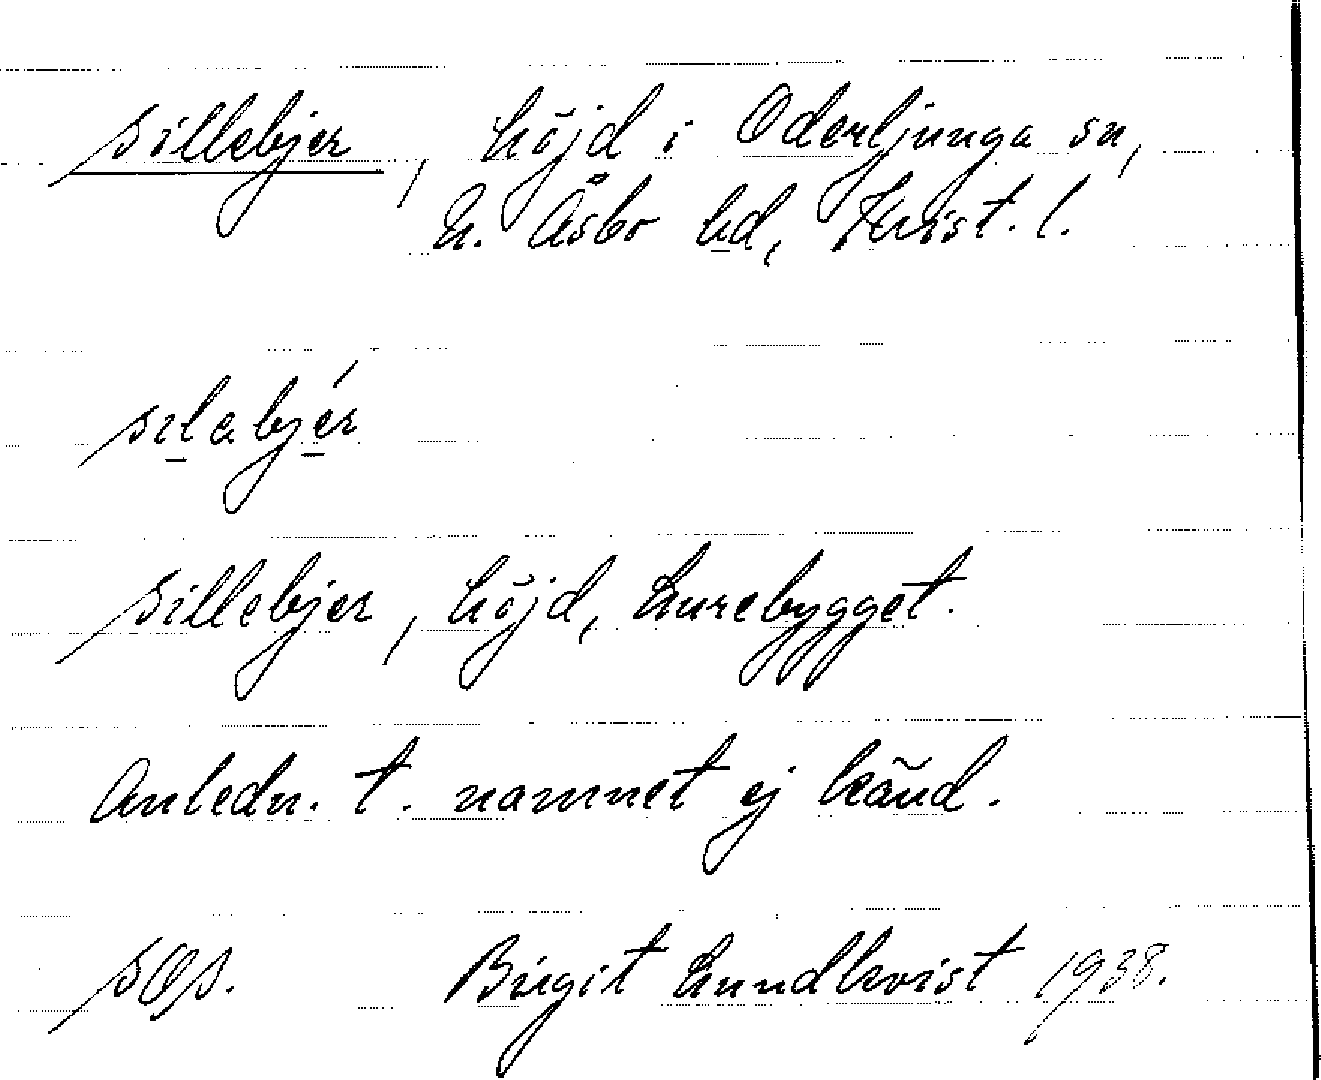 Sillebjer, höjd i Oderljunga sn,
N. Åsbo hd, Krist. l.
sıləbjér
Sillebjer, höjd, Lurebygget.
Anledn. t. namnet ej känd.
Birgit Lundkvist 1938.